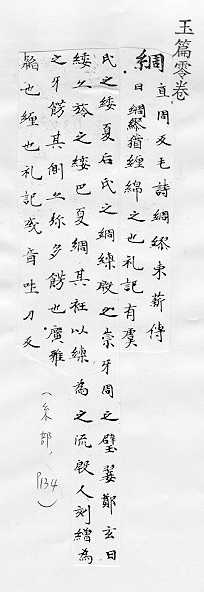 玉篇零卷
綢 直周反毛詩綢繆束薪傳
曰綢繆猶纏綿之也礼記有虞
氏之綏夏后氏之綢練殷之崇牙周之璧翣鄭玄曰
綏亦旍之綏也夏綢其杠以練為之流殷人刻繒為
之牙飾其側亦弥多飾也廣雅
韜也纏也礼記或音吐刀反
(糸部, P134)